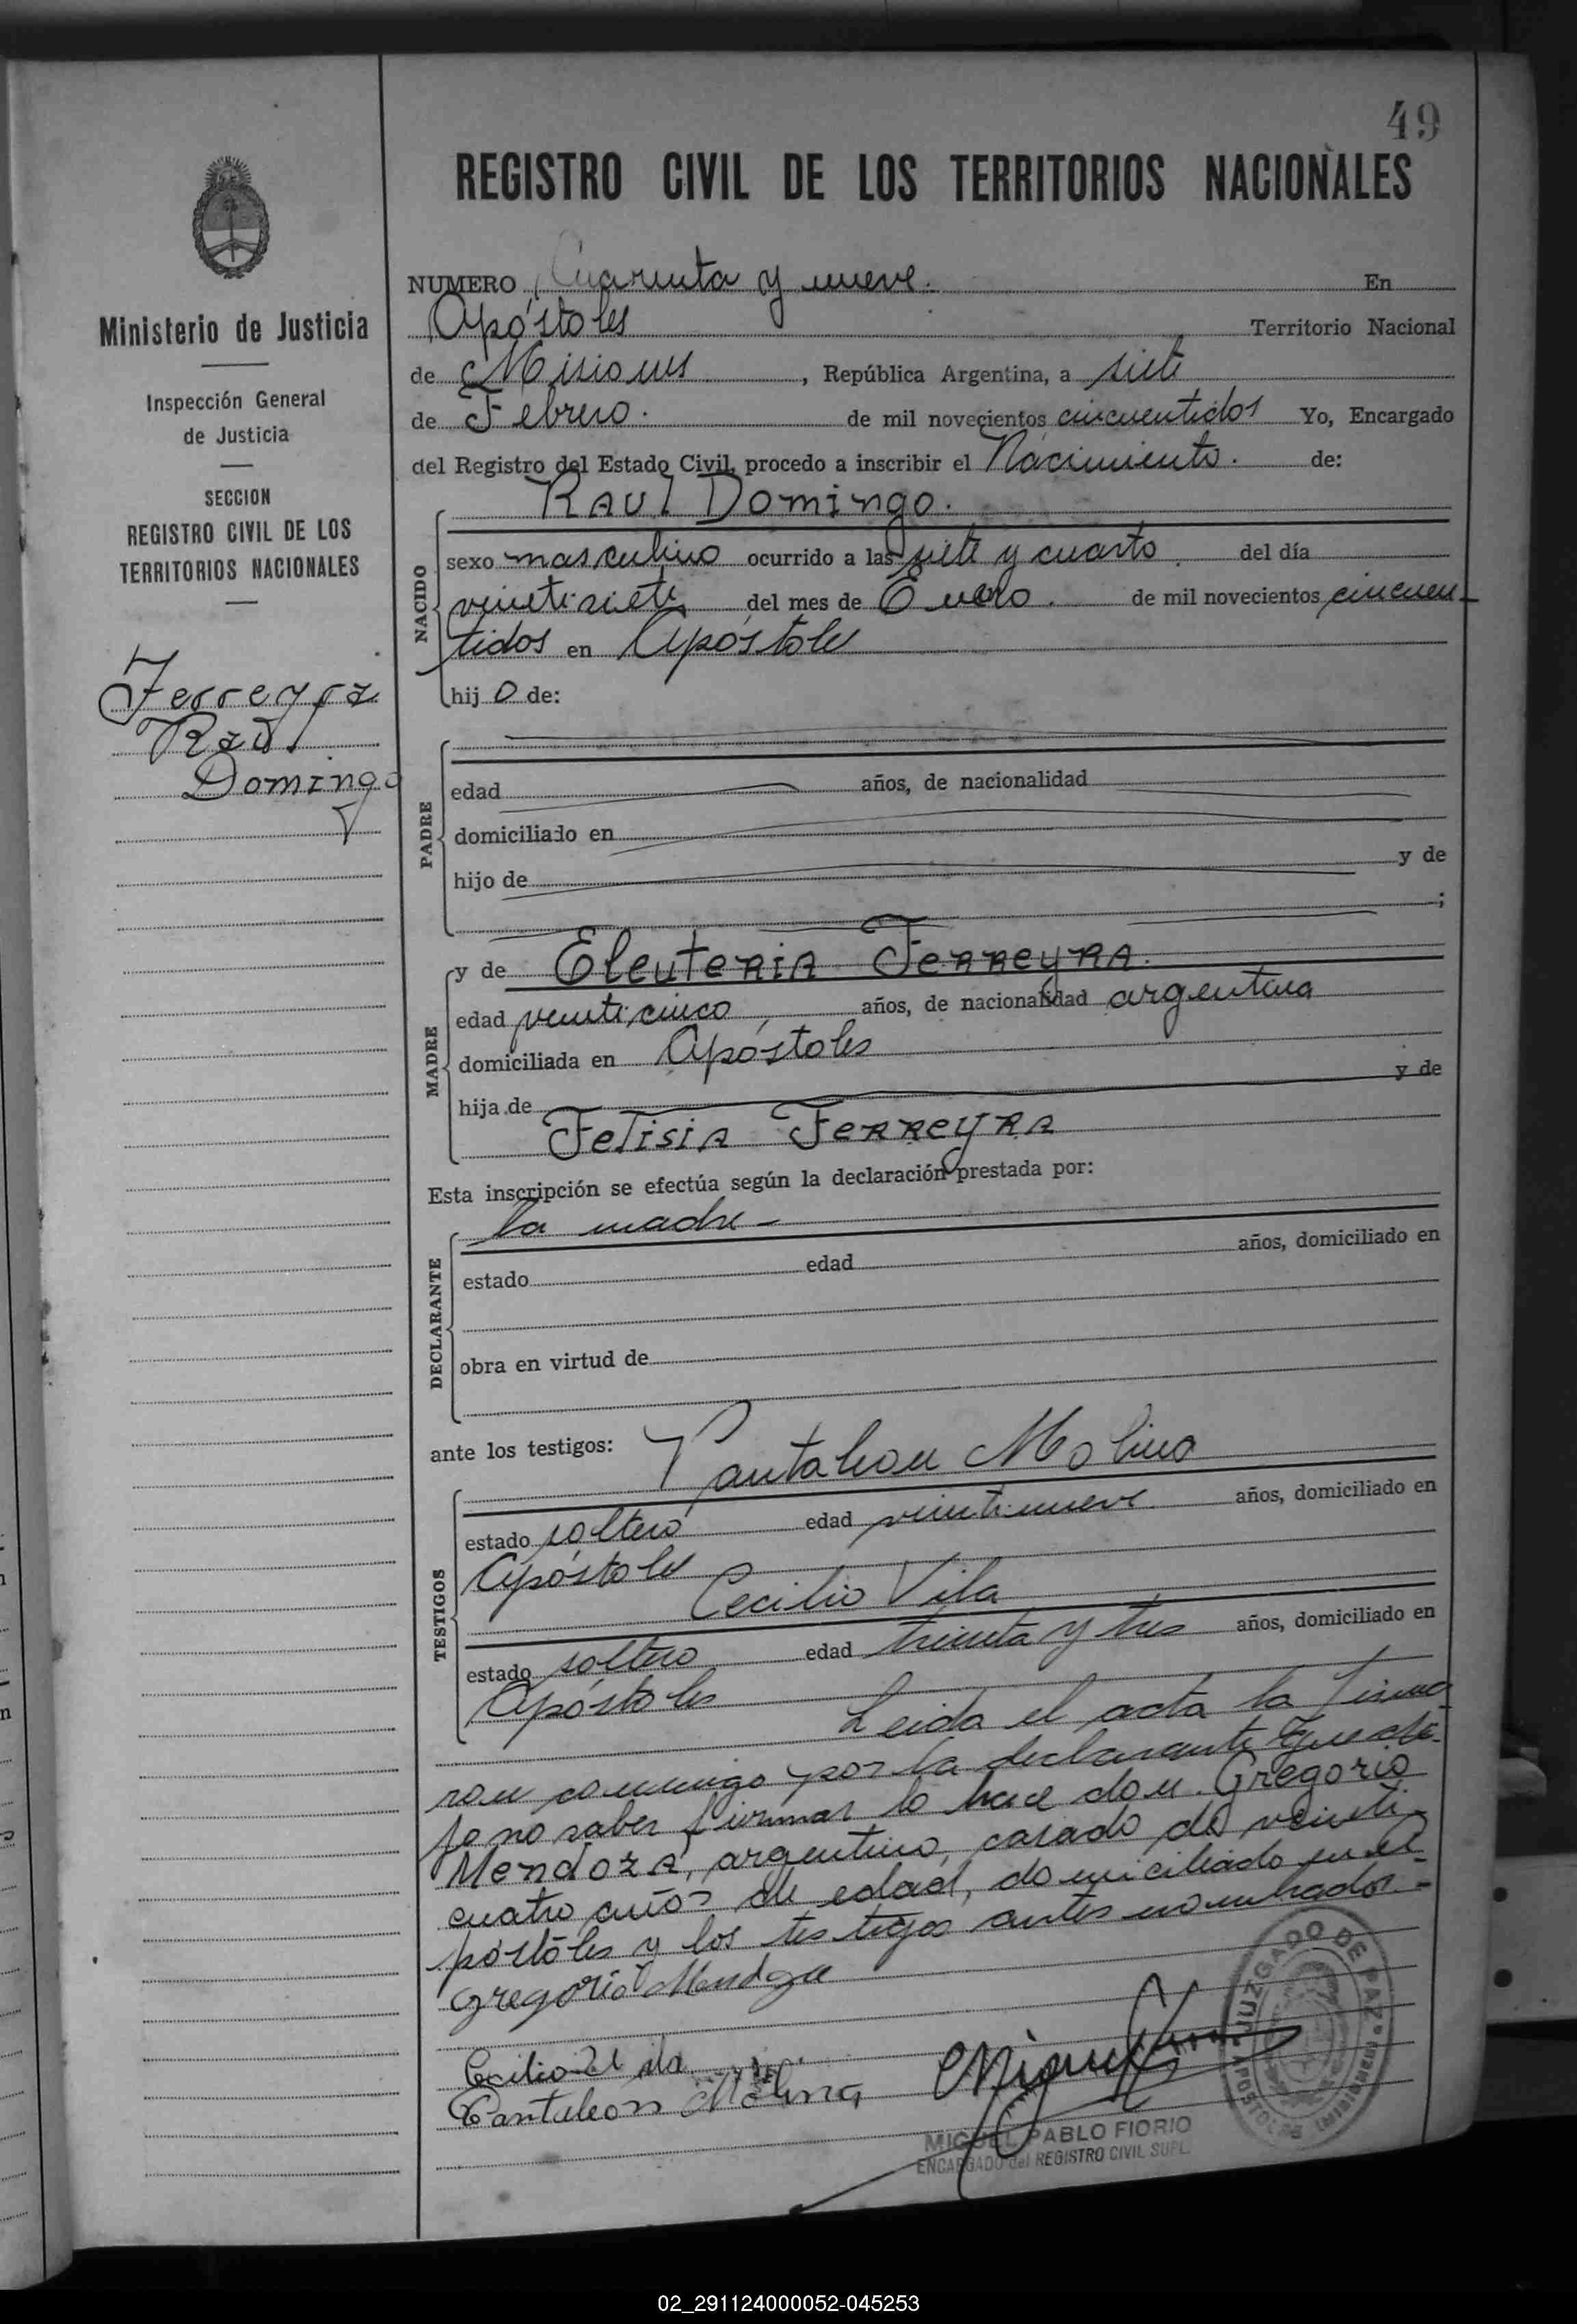 49
REGISTRO CIVIL DE LOS TERRITORIOS NACIONALES
Ministerio de Justicia
Inspección General
de Justicia
SECCION
REGISTRO CIVIL DE LOS
TERRITORIOS NACIONALES
Ferreyra
Raúl
Domingo
NUMERO Cuarenta y nueve. En
Apóstoles Territorio Nacional
de Misiones, República Argentina, a siete
de Febrero. de mil novecientos cincuentidos Yo, Encargado
del Registro del Estado Civil, procedo a inscribir el Nacimiento. de:
NACIDO
RAUl Domingo.
sexo masculino ocurrido a las siete y cuarto. del día
veintisiete del mes de Enero. de mil novecientos cincuen-
tidos en Apóstoles
hij o de:
PADRE
edad años, de nacionalidad
domiciliado en
hijo de y de
;
MADRE
y de EleuteRiA FeRReyRA.
edad veinticinco, años, de nacionalidad argentina
domiciliada en Apóstoles
hija de y de
FelisiA FeRReyRA
Esta inscripción se efectúa según la declaración prestada por:
la madre -
DECLARANTE
estado edad años, domiciliado en
obra en virtud de
ante los testigos: Pantaleon Molina
TESTIGOS
estado soltero edad veintinueve años, domiciliado en
Apóstoles
Cecilio Vila
estado soltero edad treinta y tres años, domiciliado en
Apóstoles Leida el acta la firma
ron conmigo por la declarante que di-
jo no saber firmar lo hace don Gregorio
MendozA, argentino, casado de veinti-
cuatro años de edad, domiciliado en A-
póstoles y los testigos antes nombrados.-
Gregorio Mendoza
Cecilio Vila
Pantaleon Molina
MIGUEL PABLO FIORIO
ENCARGADO del REGISTRO CIVIL SUPL.
JUZGADO DE PAZ
APOSTOLES
02_291124000052-045253